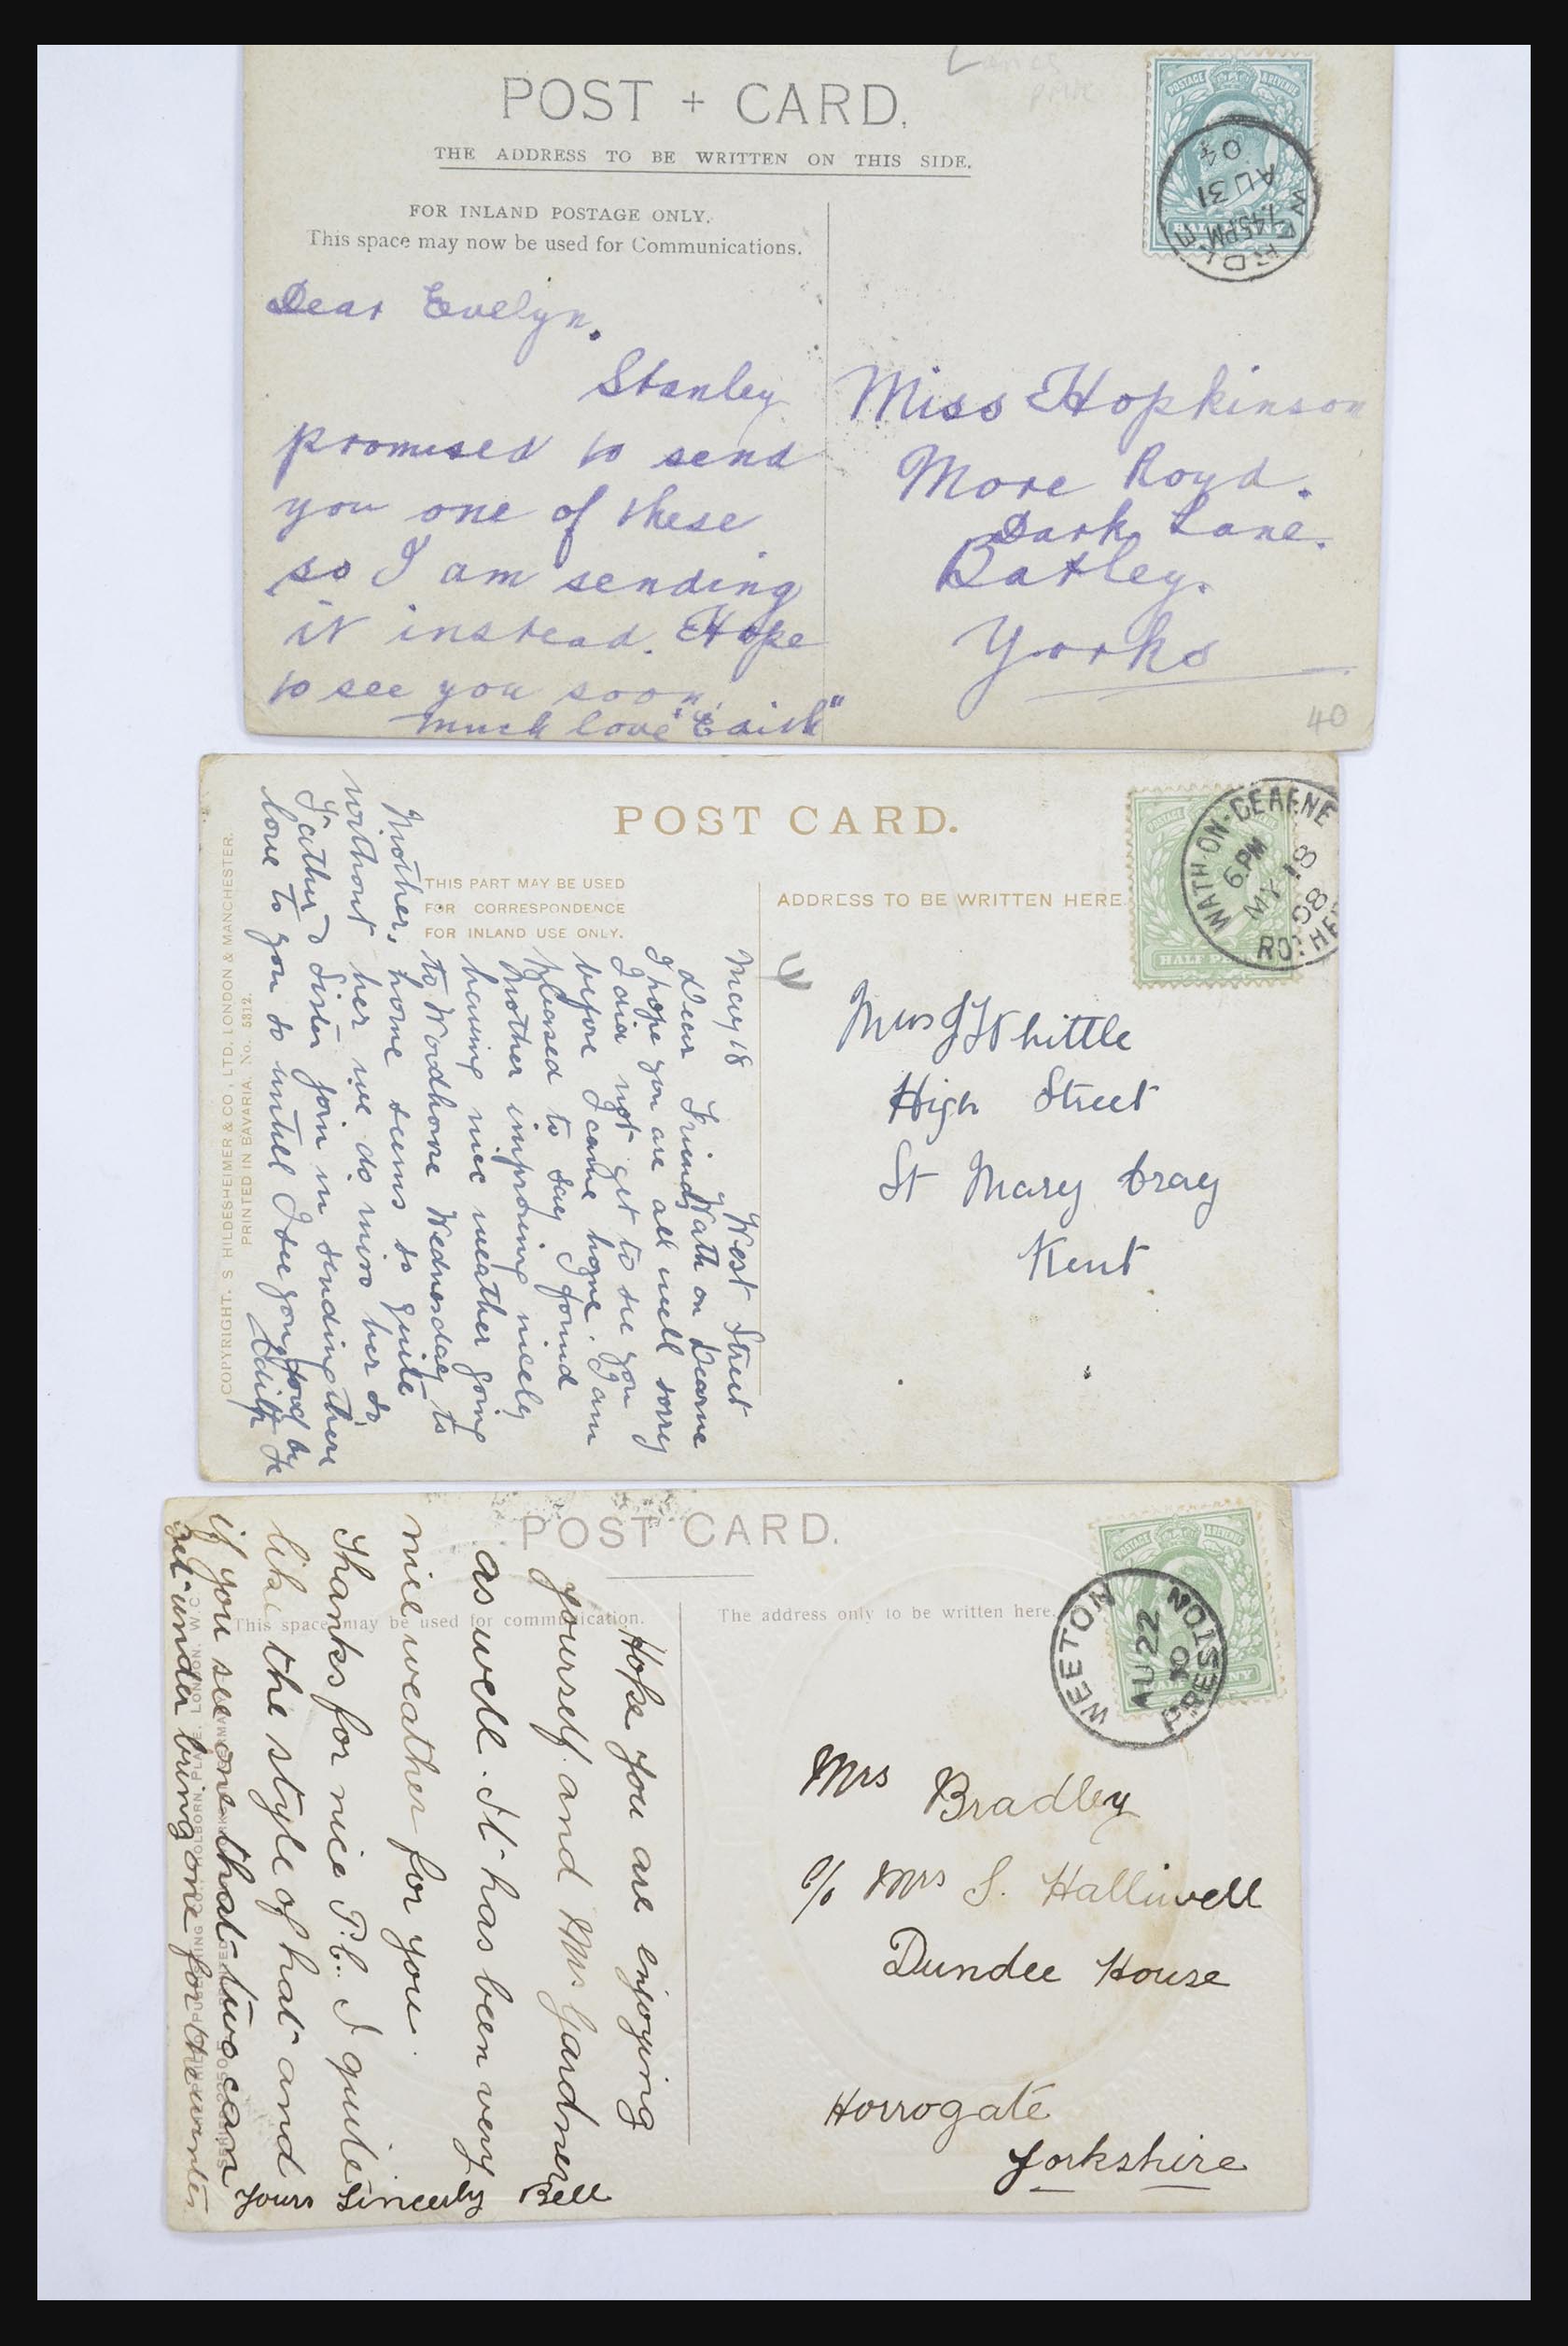 Lancs
POST + CARD.
THE ADDRESS TO BE WRITTEN ON THIS SIDE.
FOR INLAND POSTAGE ONLY.
This space may now be used for Communications.
POSTAGE & REVENUE
HALFPENNY
7.45PM
AU 31
04
Dear Evelyn.
Stanley
promised to send
you one of these
so I am sending
it instead. Hope
to see you soon.
much love "Edith"
Miss Hopkinson
More Royd.
Dark Lane.
Batley.
Yorks
40
POST CARD.
THIS PART MAY BE USED
FOR CORRESPONDENCE
FOR INLAND USE ONLY.
ADDRESS TO BE WRITTEN HERE
WATH-ON-DEARNE
6 PM
MY 18
08
ROTHE
HALF PENNY
Mrs J Whittle
High Street
St Mary Cray
Kent
May 18 West Street
Wath on Dearne
Dear Friend,
I hope you are all well sorry
I did not get to see you
before I came home. I am
pleased to say I found
Mother improving nicely
having nice weather going
to Woodhouse Wednesday to
Mother, home seems so quite
without her we do miss her so
Father & Sister join in sending there
love to you so untill I see you good by
Edith
COPYRIGHT. S HILDESHEIMER & CO, LTD. LONDON & MANCHESTER.
PRINTED IN BAVARIA. No. 5312.
POST CARD.
This space may be used for communication.
The address only to be written here.
WEETON
AU 22
10
PRESTON
Mrs Bradley
c/o Mrs S. Halliwell
Dundee House
Horrogate
Yorkshire
Hope you are enjoying
yourself and Mrs Gardner
as well. It has been very
nice weather for you.
Thanks for nice P.C. I quite
like the style of hat and
if you see one that two can
get under bring one for the winter
Yours Sincerly Bell